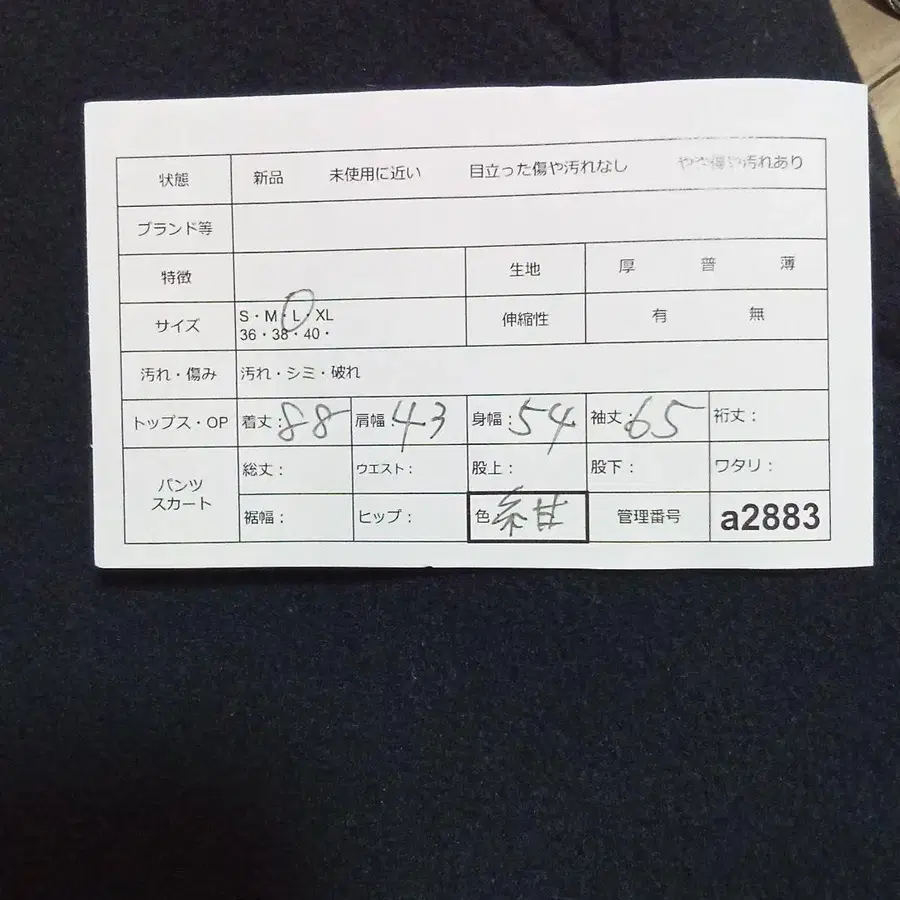 状態 新品 未使用に近い 目立った傷や汚れなし やや傷や汚れあり
ブランド等
特徴 生地 厚 普 薄
サイズ S・M・L・XL 伸縮性 有 無
36・38・40・
汚れ・傷み 汚れ・シミ・破れ
トップス・OP 着丈:88 肩幅:43 身幅:54 袖丈:65 裄丈:
パンツ スカート 総丈: ウエスト: 股上: 股下: ワタリ:
裾幅: ヒップ: 色:紺 管理番号 a2883